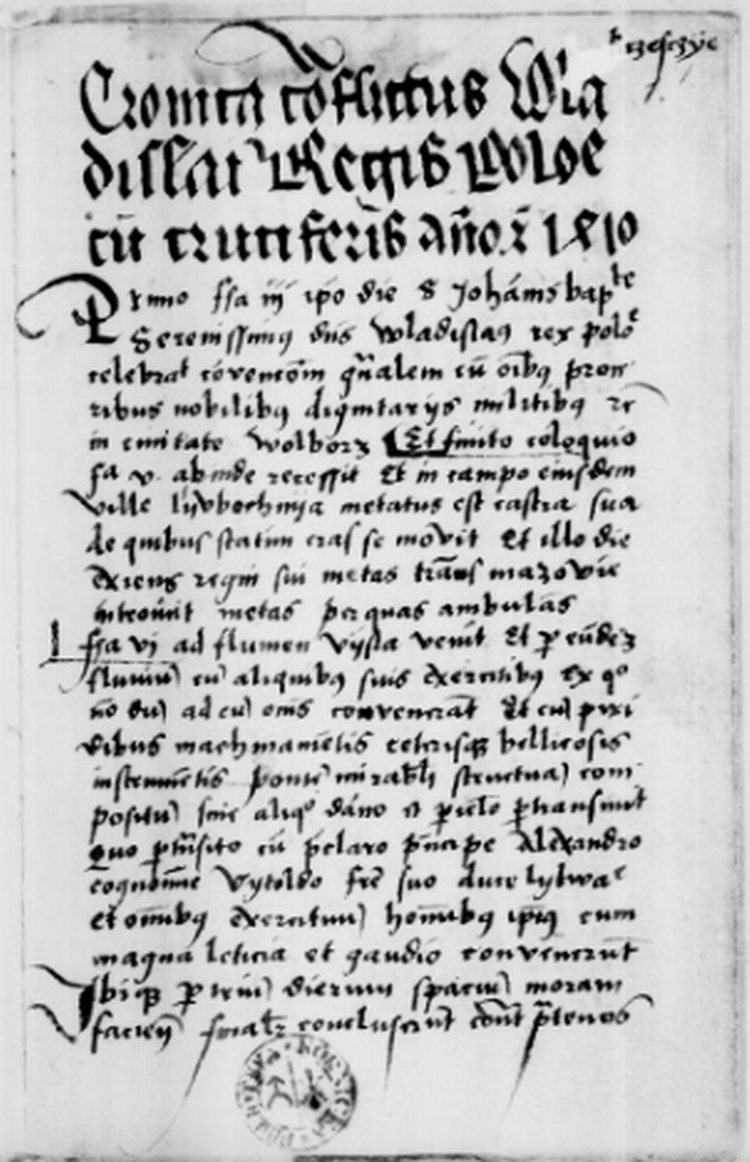 Cronica cōflictus Wla
dislai Regis Poloe
cū cruciferis año. 1410
Primo ffa iij ipo die S Johānis bapte
Serenissimq dns wladislaq rex polo
celebrat covencōm gn̄alem cū oībq proce
ribus nobilibq dignitarys militibq
in civitate wolborz Et finito coloquio
fa v. abinde recessit Et in campo eiusdem
ville lyvbochnya metatus est castra sua
de quibus statim cras se movit Et illo die
exiens regni sui metas trans mazovie
metas per quas ambulās
ffa vj ad flumen vysla venit Et p eūdez
fluviū cū aliquibq suis exercitibq ex qo
nō dū ad eū om̄s convenerāt Et cū pixi
dibus machinametis ceterisqz bellicosis
instrumētis ponte mirabli structura com
positū sine aliqo dāno et piclo ptransivit
quo pt̄nsito cū pclaro pncipe Alexandro
cognomīe Vytoldo fre suo duce lytwae
et omībq exercituū homībq ipiq cum
magna leticia et gaudio convenerūt
Ibiqz p triū dierum spaciū moram
facien finalr concluserūt